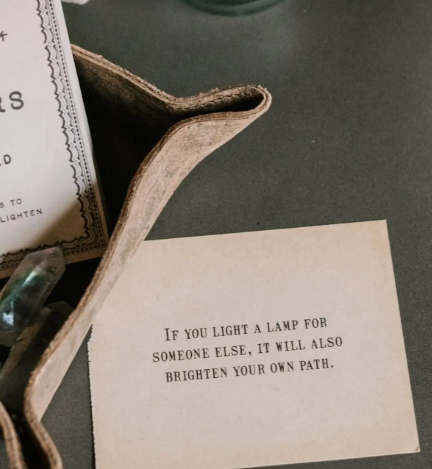 RS
D
S TO
LIGHTEN
IF YOU LIGHT A LAMP FOR
SOMEONE ELSE, IT WILL ALSO
BRIGHTEN YOUR OWN PATH.